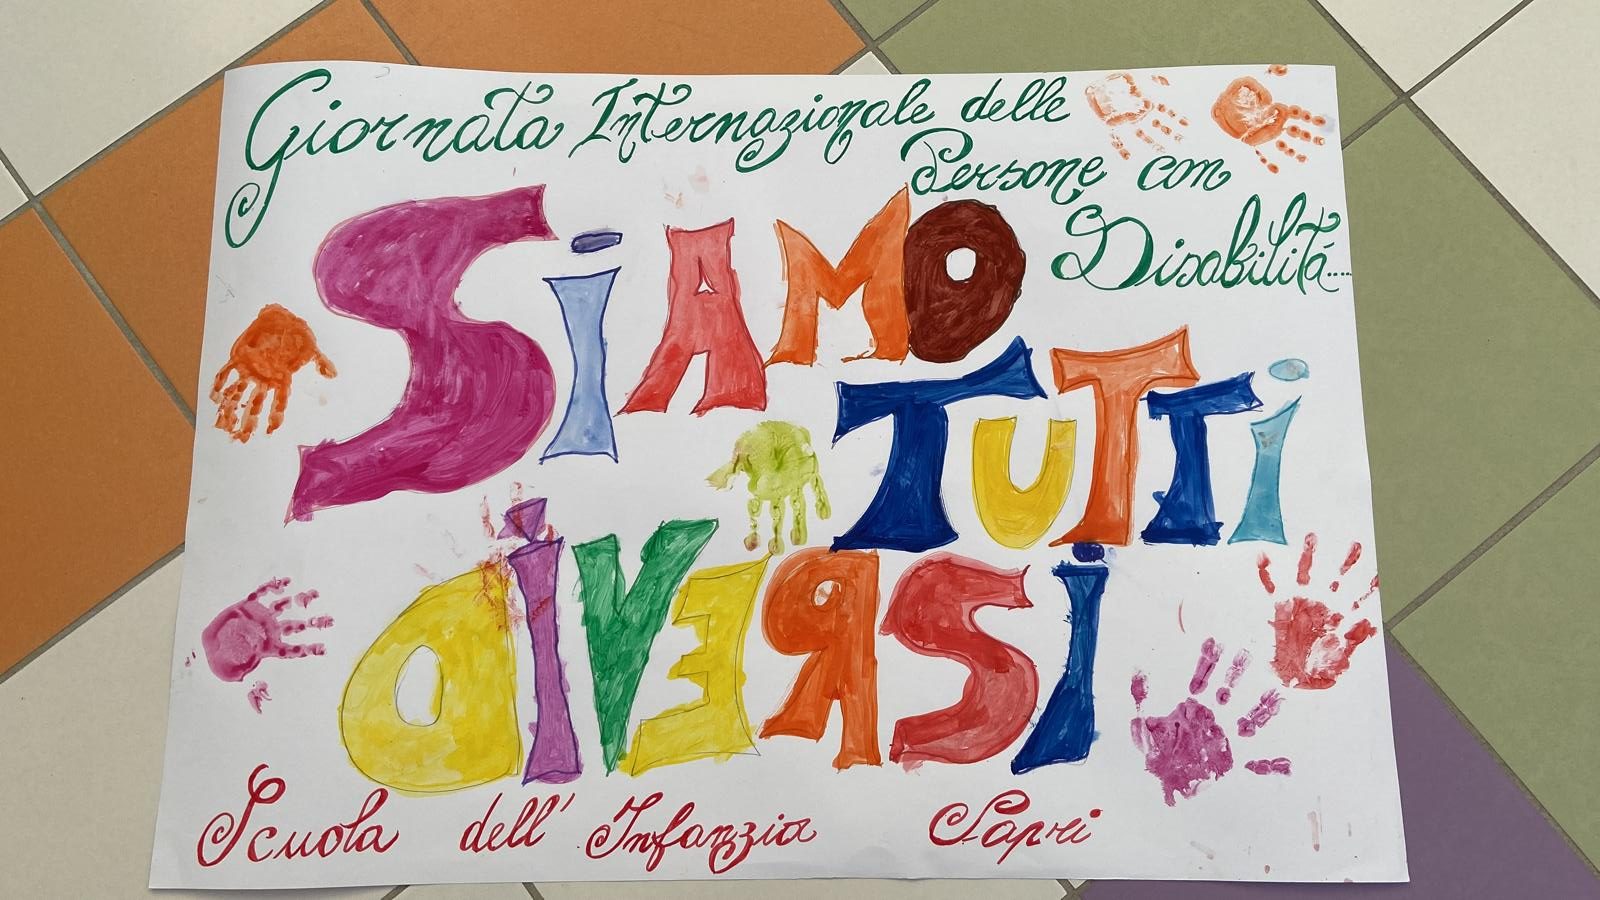 Giornata Internazionale delle
Persone con
Disabilità.....
SiAMO
TUTTi
DiVERSi
Scuola dell' Infanzia Sapri